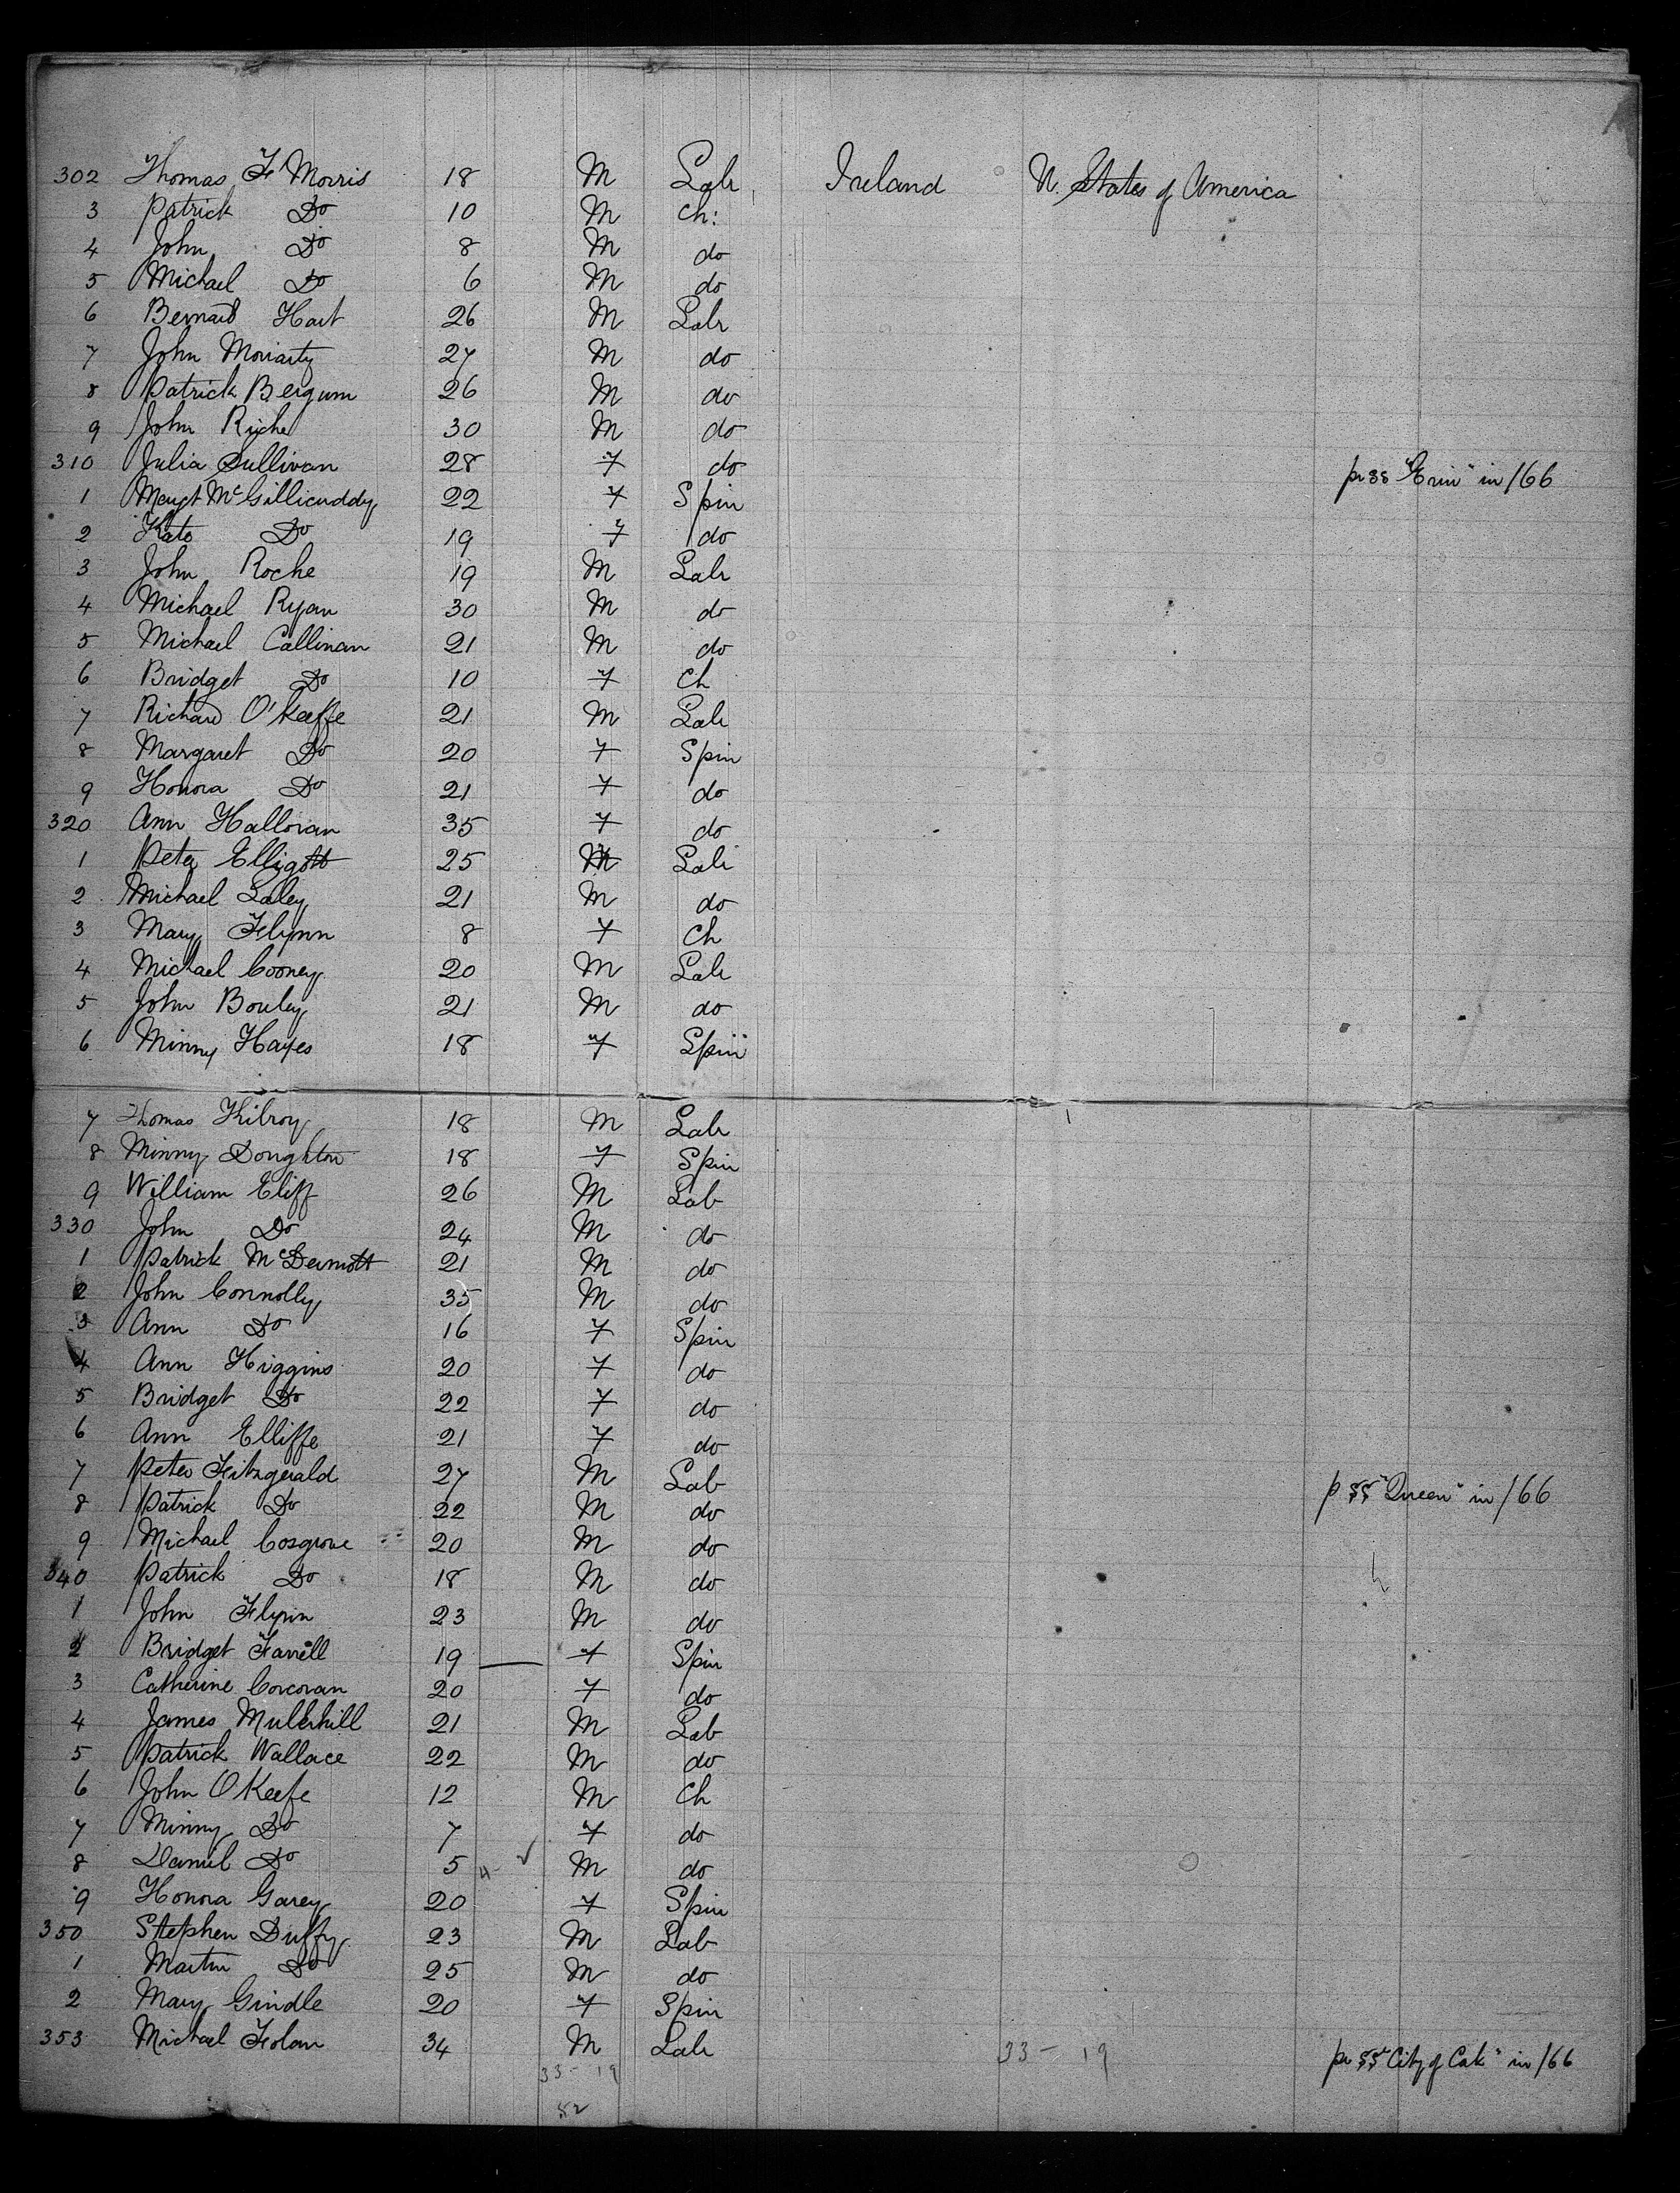 302 Thomas F Morris 18 M Labr Ireland U. States of America
3 Patrick Do 10 M Ch:
4 John Do 8 M do
5 Michael Do 6 M do
6 Bernard Hart 26 M Labr
7 John Moriarty 27 M do
8 Patrick Bergum 26 M do
9 John Riche 30 M do
310 Julia Sullivan 28 F do pr ss "Erin" in /66
1 Margt McGillicuddy 22 F Spin
2 Kate Do 19 F do
3 John Roche 19 M Labr
4 Michael Ryan 30 M do
5 Michael Callinan 21 M do
6 Bridget Do 10 F Ch
7 Richard O'Keeffe 21 M Labr
8 Margaret Do 20 F Spin
9 Honora Do 21 F do
320 Ann Halloran 35 F do
1 Peter Elligott 25 M Labr
2 Michael Laley 21 M do
3 Mary Flynn 8 F Ch
4 Michael Cooney 20 M Labr
5 John Bouley 21 M do
6 Minny Hayes 18 F Spin
7 Thomas Kilroy 18 M Labr
8 Minny Doughton 18 F Spin
9 William Eliff 26 M Lab
330 John Do 24 M do
1 Patrick McDermott 21 M do
2 John Connolly 35 M do
3 Ann Do 16 F Spin
4 Ann Higgins 20 F do
5 Bridget Do 22 F do
6 Ann Elliffe 21 F do
7 Peter Fitzgerald 27 M Lab p SS "Queen" in /66
8 Patrick Do 22 M do
9 Michael Cosgrove 20 M do
340 Patrick Do 18 M do
1 John Flynn 23 M do
2 Bridget Farrell 19 F Spin
3 Catherine Corcoran 20 F do
4 James Mulerhill 21 M Lab
5 Patrick Wallace 22 M do
6 John O Keefe 12 M Ch
7 Minny Do 7 F do
8 Daniel Do 5 M do
9 Honora Garey 20 F Spin
350 Stephen Duffy 23 M Lab
1 Martin Do 25 M do
2 Mary Grindle 20 F Spin
353 Michael Folan 34 M Labr 33 - 19 pr SS "City of Cork" in /66
33 - 19
52